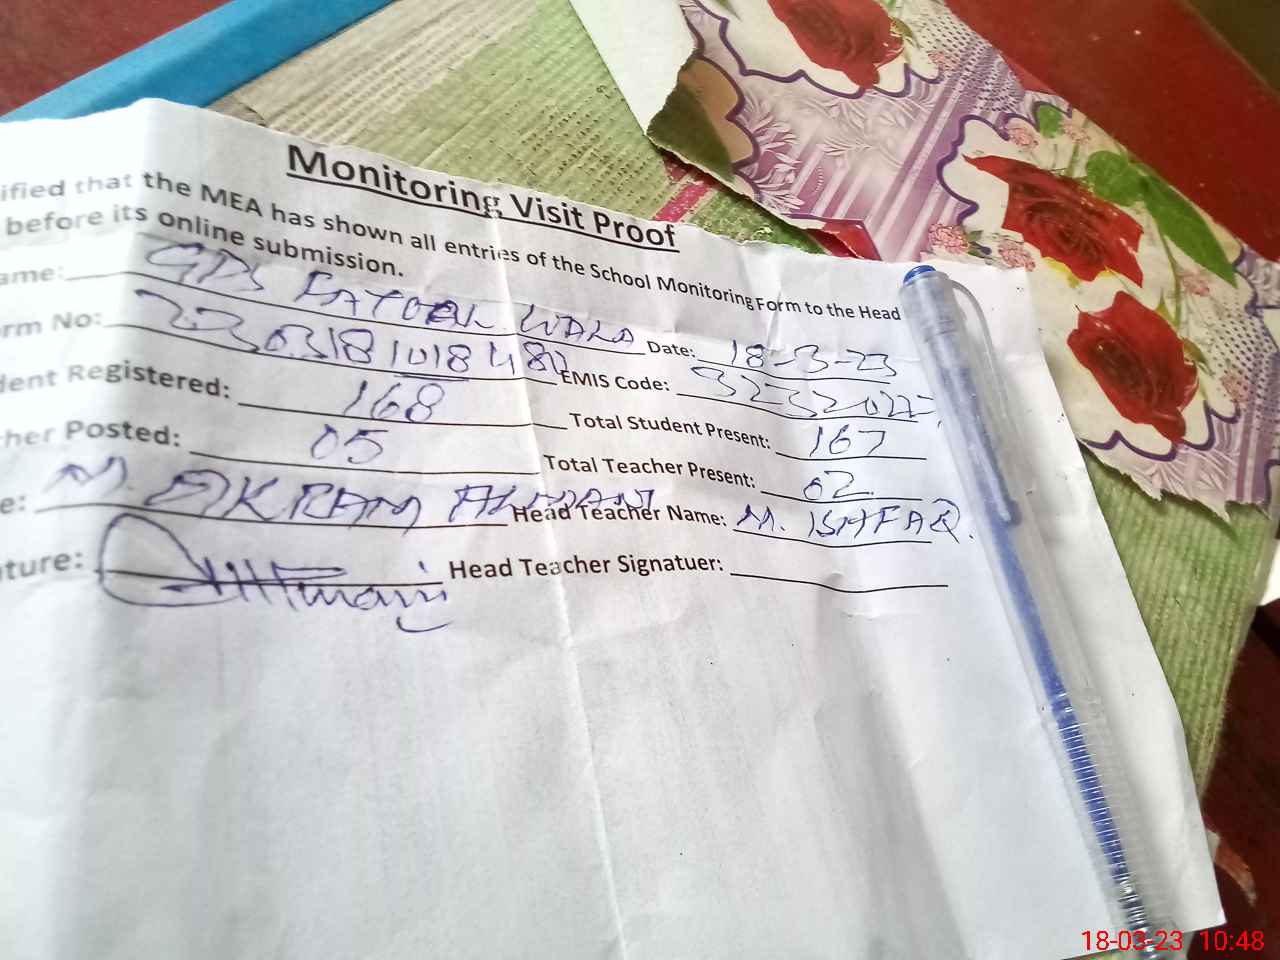 Monitoring Visit Proof
ified that the MEA has shown all entries of the School Monitoring Form to the Head
before its online submission.
ame: GPS WALA Date: 18-3-23
orm No: EMIS Code:
dent Registered: 168 Total Student Present: 167
her Posted: 05 Total Teacher Present: 02
e: M. AKRAM Head Teacher Name: M. ISHFAQ.
ture: Head Teacher Signatuer:
18-03-23 10:48